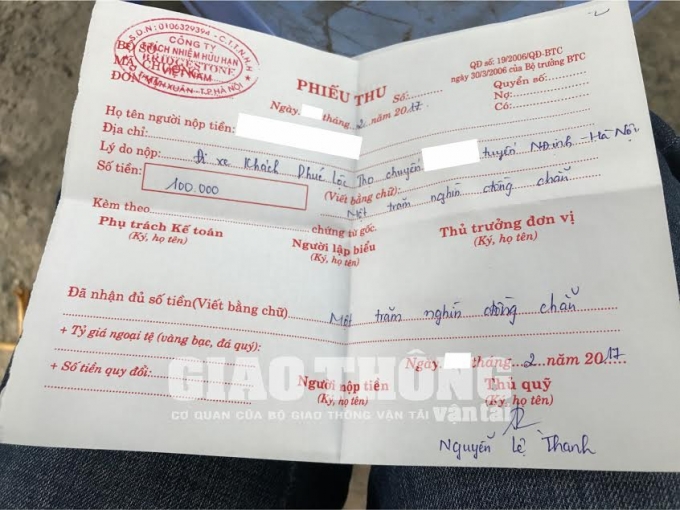 M.S.D.N: 0106329394 - C.T.T.N.H.H
CÔNG TY
TRÁCH NHIỆM HỮU HẠN
BRIDGESTONE
VIỆT NAM
XUÂN - T.P HÀ NỘI
BỘ
MÃ
ĐƠN
PHIẾU THU
Số:
QĐ số: 19/2006/QĐ-BTC
ngày 30/3/2006 của Bộ trưởng BTC
Quyển số:
Nợ:
Có:
Ngày tháng 2 năm 2017
Họ tên người nộp tiền:
Địa chỉ:
Lý do nộp: Đi xe khách Phúc Lộc Thọ chuyến tuyến NĐịnh - Hà Nội
Số tiền: 100.000 (Viết bằng chữ): Một trăm nghìn đồng chẵn
Kèm theo chứng từ gốc.
Phụ trách Kế toán
(Ký, họ tên)
Người lập biểu
(Ký, họ tên)
Thủ trưởng đơn vị
(Ký, họ tên)
Đã nhận đủ số tiền(Viết bằng chữ) Một trăm nghìn đồng chẵn
+ Tỷ giá ngoại tệ (vàng bạc, đá quý):
+ Số tiền quy đổi:
Ngày tháng 2 năm 2017
Người nộp tiền
(Ký, họ tên)
Thủ quỹ
(Ký, họ tên)
Nguyễn Lệ Thanh
GIAO THÔNG
CƠ QUAN CỦA BỘ GIAO THÔNG VẬN TẢI
vận tải